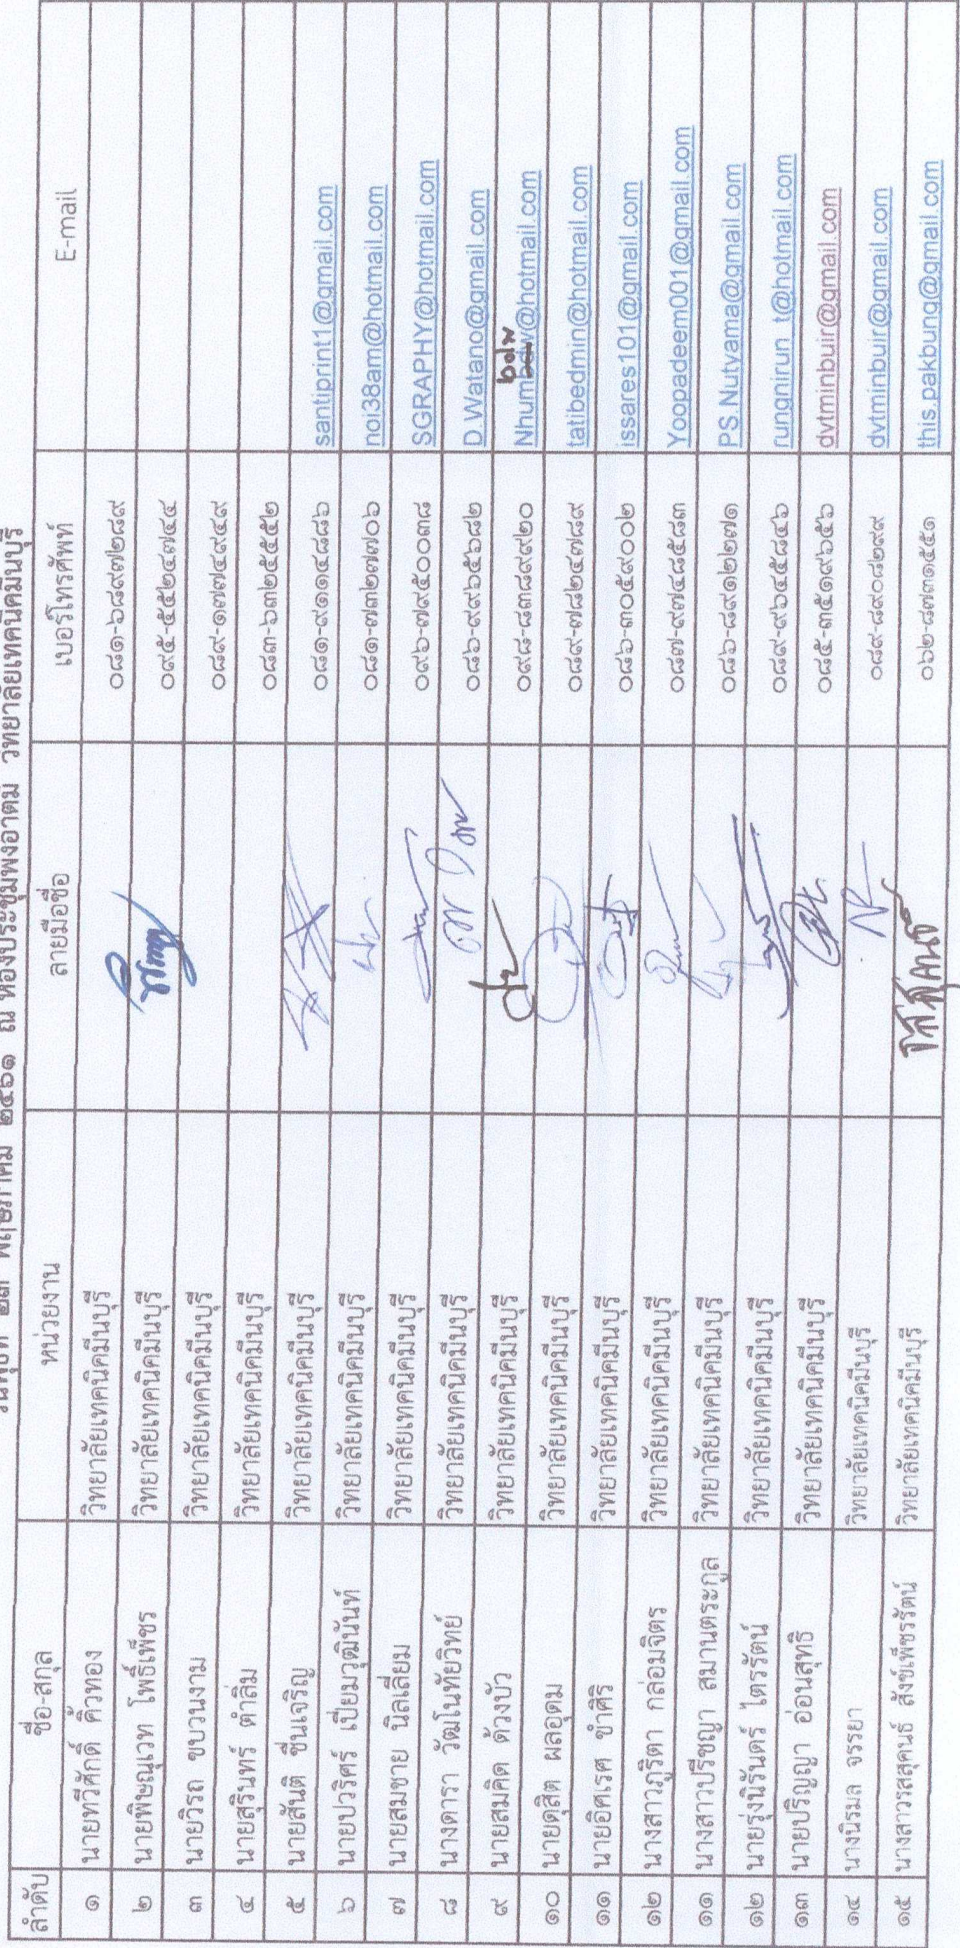 วันพุธที่ ๒๓ พฤษภาคม ๒๕๖๑ ณ ห้องประชุมพงอาตม วิทยาลัยเทคนิคมีนบุรี
ลำดับ ชื่อ-สกุล หน่วยงาน ลายมือชื่อ เบอร์โทรศัพท์ E-mail
๑ นายทวีศักดิ์ คิ้วทอง วิทยาลัยเทคนิคมีนบุรี ๐๘๑-๖๘๙๗๒๘๙
๒ นายพิษณุเวท โพธิ์เพ็ชร วิทยาลัยเทคนิคมีนบุรี ๐๙๕-๕๕๒๔๗๔๔
๓ นายวิรถ ขบวนงาม วิทยาลัยเทคนิคมีนบุรี ๐๘๙-๑๗๗๔๙๔๙
๔ นายสุรินทร์ ตำลิ่ม วิทยาลัยเทคนิคมีนบุรี ๐๘๓-๖๓๒๕๕๕๒
๕ นายสันติ ชื่นเจริญ วิทยาลัยเทคนิคมีนบุรี ๐๘๑-๙๑๑๔๘๘๖ santiprint1@gmail.com
๖ นายปวริศร์ เปี่ยมวุฒินันท์ วิทยาลัยเทคนิคมีนบุรี ๐๘๑-๗๓๒๗๗๐๖ noi38am@hotmail.com
๗ นายสมชาย นิลเลี่ยม วิทยาลัยเทคนิคมีนบุรี ๐๙๖-๗๙๕๐๐๓๘ SGRAPHY@hotmail.com
๘ นางดารา วัฒโนทัยวิทย์ วิทยาลัยเทคนิคมีนบุรี ๐๘๖-๙๙๖๕๖๘๒ D.Watano@gmail.com
๙ นายสมคิด ด้วงบัว วิทยาลัยเทคนิคมีนบุรี ๐๙๘-๘๓๘๙๙๒๐ @hotmail.com
๑๐ นายดุสิต ผลอุดม วิทยาลัยเทคนิคมีนบุรี ๐๘๙-๗๘๒๔๗๘๙ tatibedmin@hotmail.com
๑๑ นายอิศเรศ ขำศิริ วิทยาลัยเทคนิคมีนบุรี ๐๘๖-๓๐๕๙๐๐๒ issares101@gmail.com
๑๒ นางสาวภูริตา กล่อมจิตร วิทยาลัยเทคนิคมีนบุรี ๐๘๗-๙๗๔๘๕๘๓ Yoopadeem001@gmail.com
๑๑ นางสาวปรีชญา สมานตระกูล วิทยาลัยเทคนิคมีนบุรี ๐๘๖-๘๙๑๒๒๗๑ PS.Nutyama@gmail.com
๑๒ นายรุ่งนิรันดร์ ไตรรัตน์ วิทยาลัยเทคนิคมีนบุรี ๐๘๙-๙๖๔๕๘๔๖ rungnirun t@hotmail.com
๑๓ นายปริญญา อ่อนสุทธิ วิทยาลัยเทคนิคมีนบุรี ๐๘๕-๓๕๑๙๖๕๖ dvtminbuir@gmail.com
๑๔ นางนิรมล จรรยา วิทยาลัยเทคนิคมีนบุรี ๐๘๙-๘๙๐๘๒๙๙ dvtminbuir@gmail.com
๑๕ นางสาวรสสุคนธ์ สังข์เพ็ชรรัตน์ วิทยาลัยเทคนิคมีนบุรี รสสุคนธ์ ๐๖๒-๘๗๓๑๕๕๑ this.pakbung@gmail.com